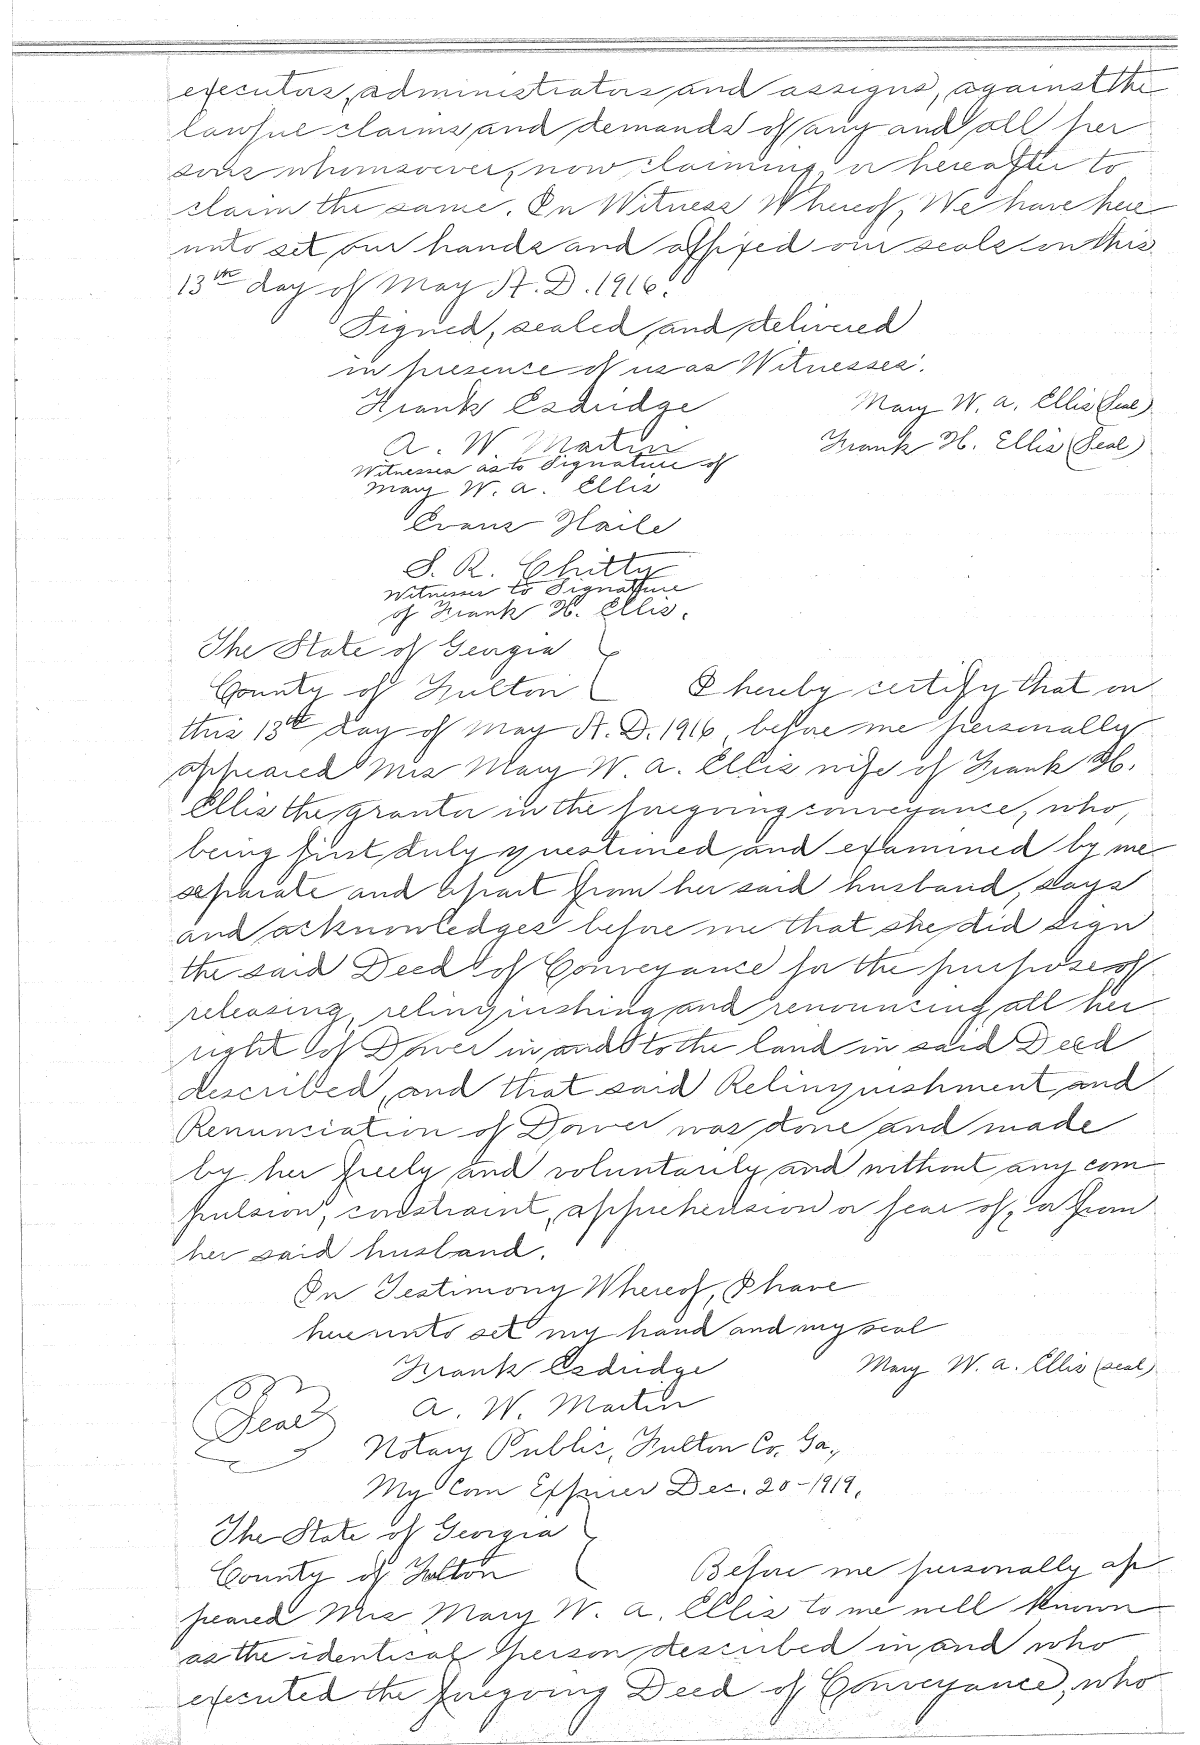 executors, administrators and assigns, against the
lawful claims and demands of any and all per
sons whomsoever, now claiming, or hereafter to
claim the same. In Witness Whereof, We have here
unto set our hands and affixed our seals on this
13th day of May A. D. 1916.
Signed, sealed and delivered
in presence of us as Witnesses:
Frank Esdridge Mary W. A. Ellis (Seal)
A. W. Martin Frank H. Ellis (Seal)
Witnesses as to Signature of
Mary W. A. Ellis
Evans Haile
S. R. Chitty
Witnesses to Signature
of Frank H. Ellis.
The State of Georgia
County of Fulton I hereby certify that on
this 13th day of May A. D. 1916, before me personally
appeared Mrs Mary W. A. Ellis wife of Frank H.
Ellis the grantor in the foregoing conveyance, who,
being first duly questioned and examined by me
separate and apart from her said husband, says
and acknowledges before me that she did sign
the said Deed of Conveyance for the purpose of
releasing, relinquishing and renouncing all her
right of Dower in and to the land in said Deed
described, and that said Relinquishment and
Renunciation of Dower was done and made
by her freely and voluntarily and without any com
pulsion, constraint, apprehension or fear of, or from
her said husband.
In Testimony Whereof, I have
here unto set my hand and my seal
Frank Esdridge Mary W. A. Ellis (seal)
Seal A. W. Martin
Notary Public, Fulton Co. Ga.,
My Com Expires Dec. 20-1919.
The State of Georgia
County of Fulton Before me personally ap
peared Mrs Mary W. A. Ellis to me well known
as the identical person described in and who
executed the foregoing Deed of Conveyance, who